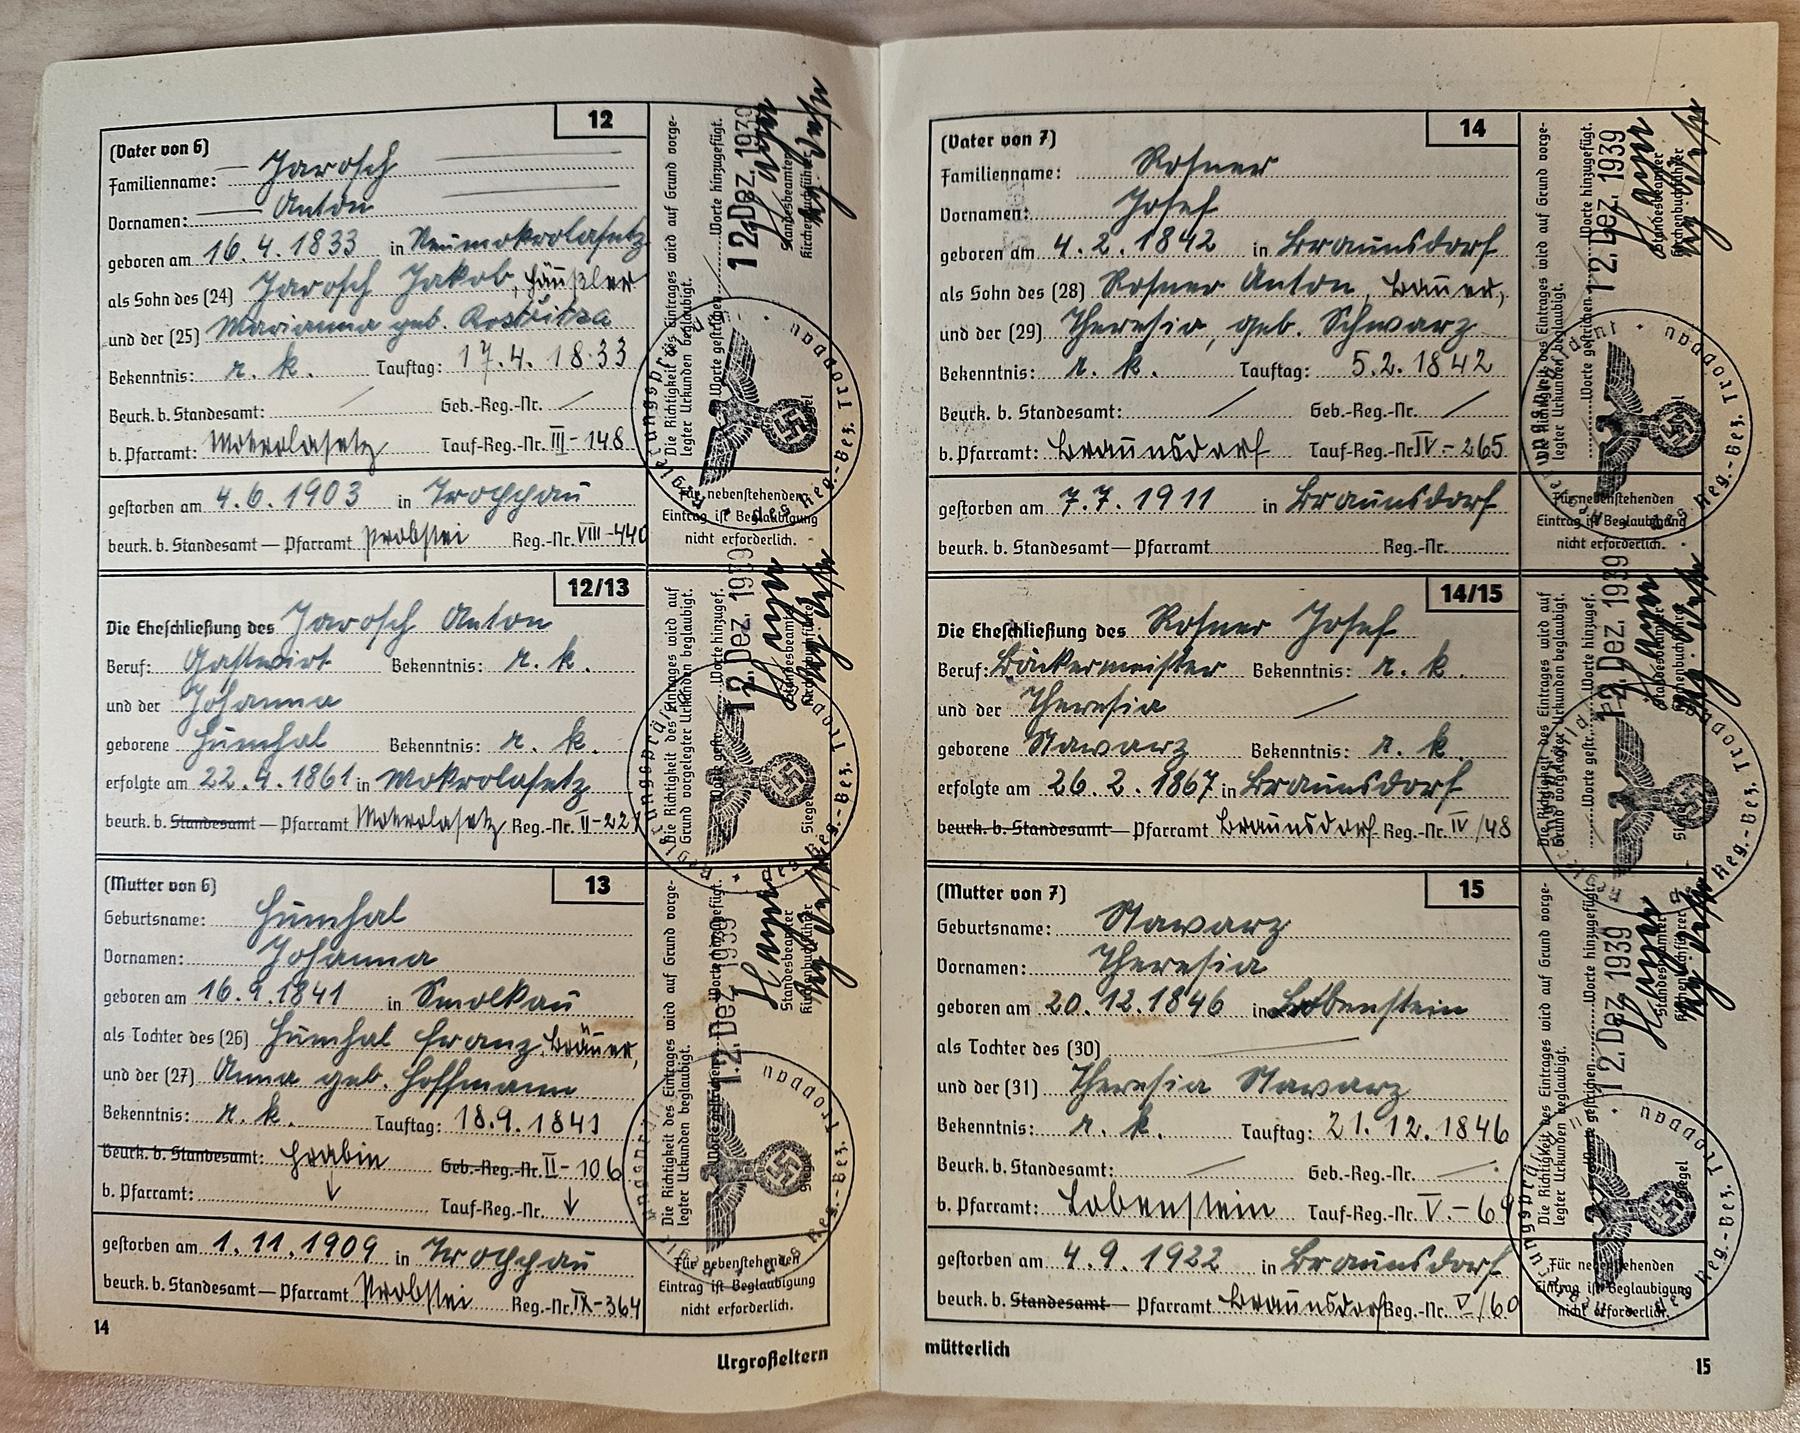 12
(Vater von 6)
Familienname: Jarosch
Vornamen: Anton
geboren am 16.4.1833 in Neumokrolasetz
als Sohn des (24) Jarosch Jakob, Häusler
und der (25) Marianna geb.
Bekenntnis: r. k. Tauftag: 17.4.1833
Beurk. b. Standesamt: / Geb.-Reg.-Nr. /
b. Pfarramt: Mokrolasetz Tauf-Reg.-Nr. III-148
gestorben am 4.6.1903 in Troppau
beurk. b. Standesamt — Pfarramt Probstei Reg.-Nr. VIII-440
12/13
Die Eheschließung des Jarosch Anton
Beruf: Gastwirt Bekenntnis: r. k.
und der Johanna
geborene Humhal Bekenntnis: r. k.
erfolgte am 22.4.1861 in Mokrolasetz
beurk. b. Standesamt — Pfarramt Mokrolasetz Reg.-Nr. II-221
13
(Mutter von 6)
Geburtsname: Humhal
Vornamen: Johanna
geboren am 16.9.1841 in Smolkau
als Tochter des (26) Humhal Franz, Bräuer,
und der (27) Anna geb. Hoffmann
Bekenntnis: r. k. Tauftag: 18.9.1841
Beurk. b. Standesamt: Hrabin Geb.-Reg.-Nr. II-106
b. Pfarramt: Tauf-Reg.-Nr.
gestorben am 1.11.1909 in Troppau
beurk. b. Standesamt — Pfarramt Probstei Reg.-Nr. IX-364
Die Richtigkeit des Eintrages wird auf Grund vorge-
legter Urkunden beglaubigt.
Worte gestrichen Worte hinzugefügt.
12. Dez. 1939
Standesbeamter
Kirchenbuchführer
Siegel
Regierungspräsident
des Reg.-Bez. Troppau
Für nebenstehenden
Eintrag ist Beglaubigung
nicht erforderlich.
Die Richtigkeit des Eintrages wird auf
Grund vorgelegter Urkunden beglaubigt.
Worte gestr. Worte hinzugef.
12. Dez. 1939
Standesbeamter
Kirchenbuchführer
Siegel
Regierungspräsident
des Reg.-Bez. Troppau
Die Richtigkeit des Eintrages wird auf Grund vorge-
legter Urkunden beglaubigt.
Worte gestrichen Worte hinzugefügt.
12. Dez. 1939
Standesbeamter
Kirchenbuchführer
Siegel
Regierungspräsident
des Reg.-Bez. Troppau
Für nebenstehenden
Eintrag ist Beglaubigung
nicht erforderlich.
14
Urgroßeltern
14
(Vater von 7)
Familienname: Rosner
Vornamen: Josef
geboren am 4.2.1842 in Braunsdorf
als Sohn des (28) Rosner Anton, Bauer,
und der (29) Theresia, geb. Schwarz
Bekenntnis: r. k. Tauftag: 5.2.1842
Beurk. b. Standesamt: / Geb.-Reg.-Nr. /
b. Pfarramt: Braunsdorf Tauf-Reg.-Nr. IV-265
gestorben am 7.7.1911 in Braunsdorf
beurk. b. Standesamt — Pfarramt Reg.-Nr.
14/15
Die Eheschließung des Rosner Josef
Beruf: Bäckermeister Bekenntnis: r. k.
und der Theresia /
geborene Stawarz Bekenntnis: r. k.
erfolgte am 26.2.1867 in Braunsdorf
beurk. b. Standesamt — Pfarramt Braunsdorf Reg.-Nr. IV/48
15
(Mutter von 7)
Geburtsname: Stawarz
Vornamen: Theresia
geboren am 20.12.1846 in Lobenstein
als Tochter des (30)
und der (31) Theresia Stawarz
Bekenntnis: r. k. Tauftag: 21.12.1846
Beurk. b. Standesamt: / Geb.-Reg.-Nr. /
b. Pfarramt: Lobenstein Tauf-Reg.-Nr. V.-69
gestorben am 4.9.1922 in Braunsdorf
beurk. b. Standesamt — Pfarramt Braunsdorf Reg.-Nr. V/60
Die Richtigkeit des Eintrages wird auf Grund vorge-
legter Urkunden beglaubigt.
Worte gestrichen Worte hinzugefügt.
12. Dez. 1939
Standesbeamter
Kirchenbuchführer
Siegel
Regierungspräsident
des Reg.-Bez. Troppau
Für nebenstehenden
Eintrag ist Beglaubigung
nicht erforderlich.
Die Richtigkeit des Eintrages wird auf
Grund vorgelegter Urkunden beglaubigt.
Worte gestr. Worte hinzugef.
12. Dez. 1939
Standesbeamter
Kirchenbuchführer
Siegel
Regierungspräsident
des Reg.-Bez. Troppau
Die Richtigkeit des Eintrages wird auf Grund vorge-
legter Urkunden beglaubigt.
Worte gestrichen Worte hinzugefügt.
12. Dez. 1939
Standesbeamter
Kirchenbuchführer
Siegel
Regierungspräsident
des Reg.-Bez. Troppau
Für nebenstehenden
Eintrag ist Beglaubigung
nicht erforderlich.
mütterlich
15